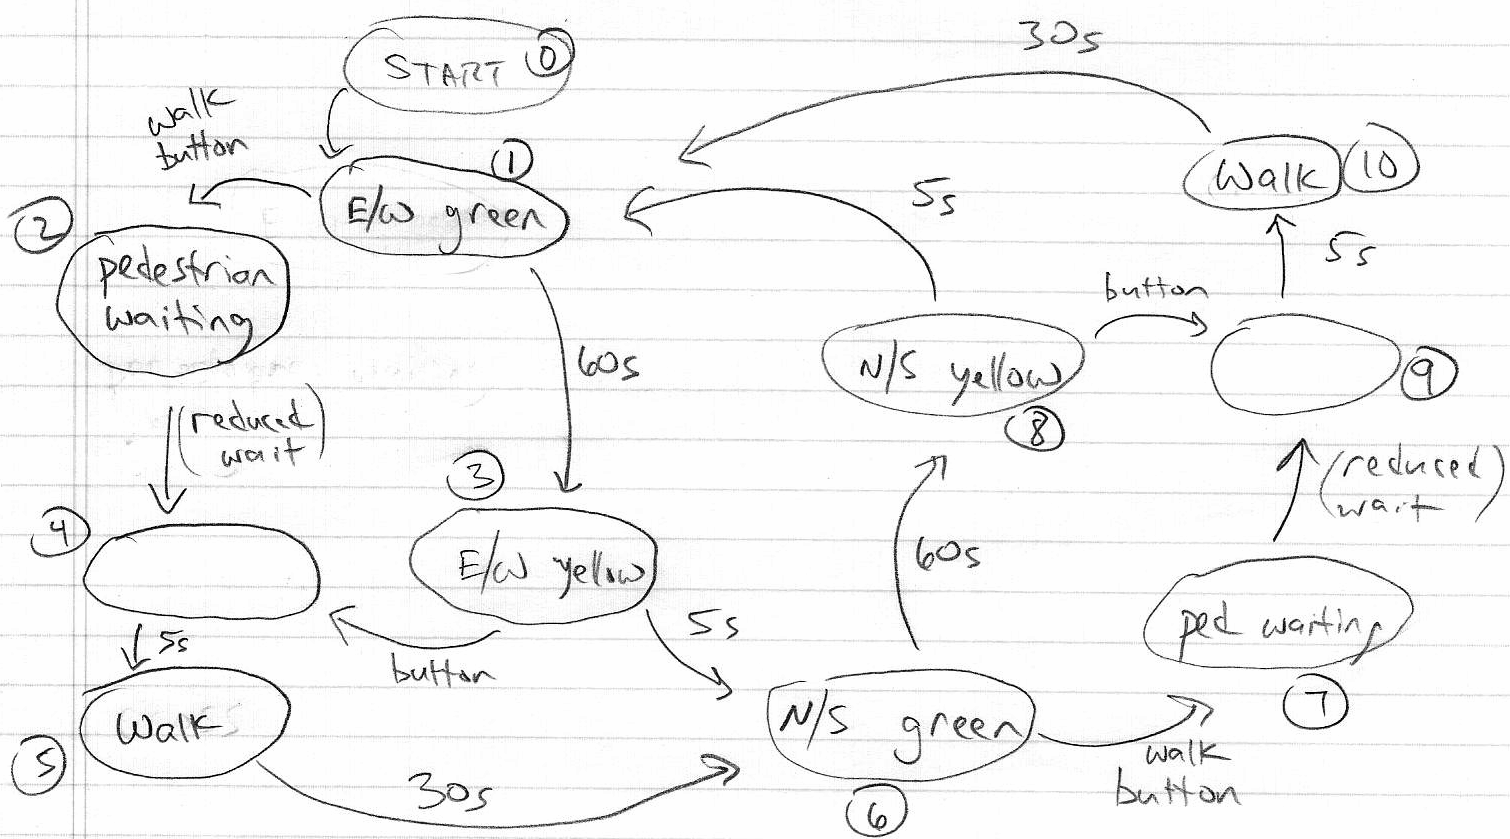 START 0
30s
walk
button
1
E/W green
Walk 10
5s
2
pedestrian
waiting
5s
button
60s
N/S yellow
9
8
(reduced
wait)
3
(reduced
wait)
4
E/W yellow
60s
5s
ped waiting
5s
button
7
Walk
N/S green
walk
button
5
30s
6